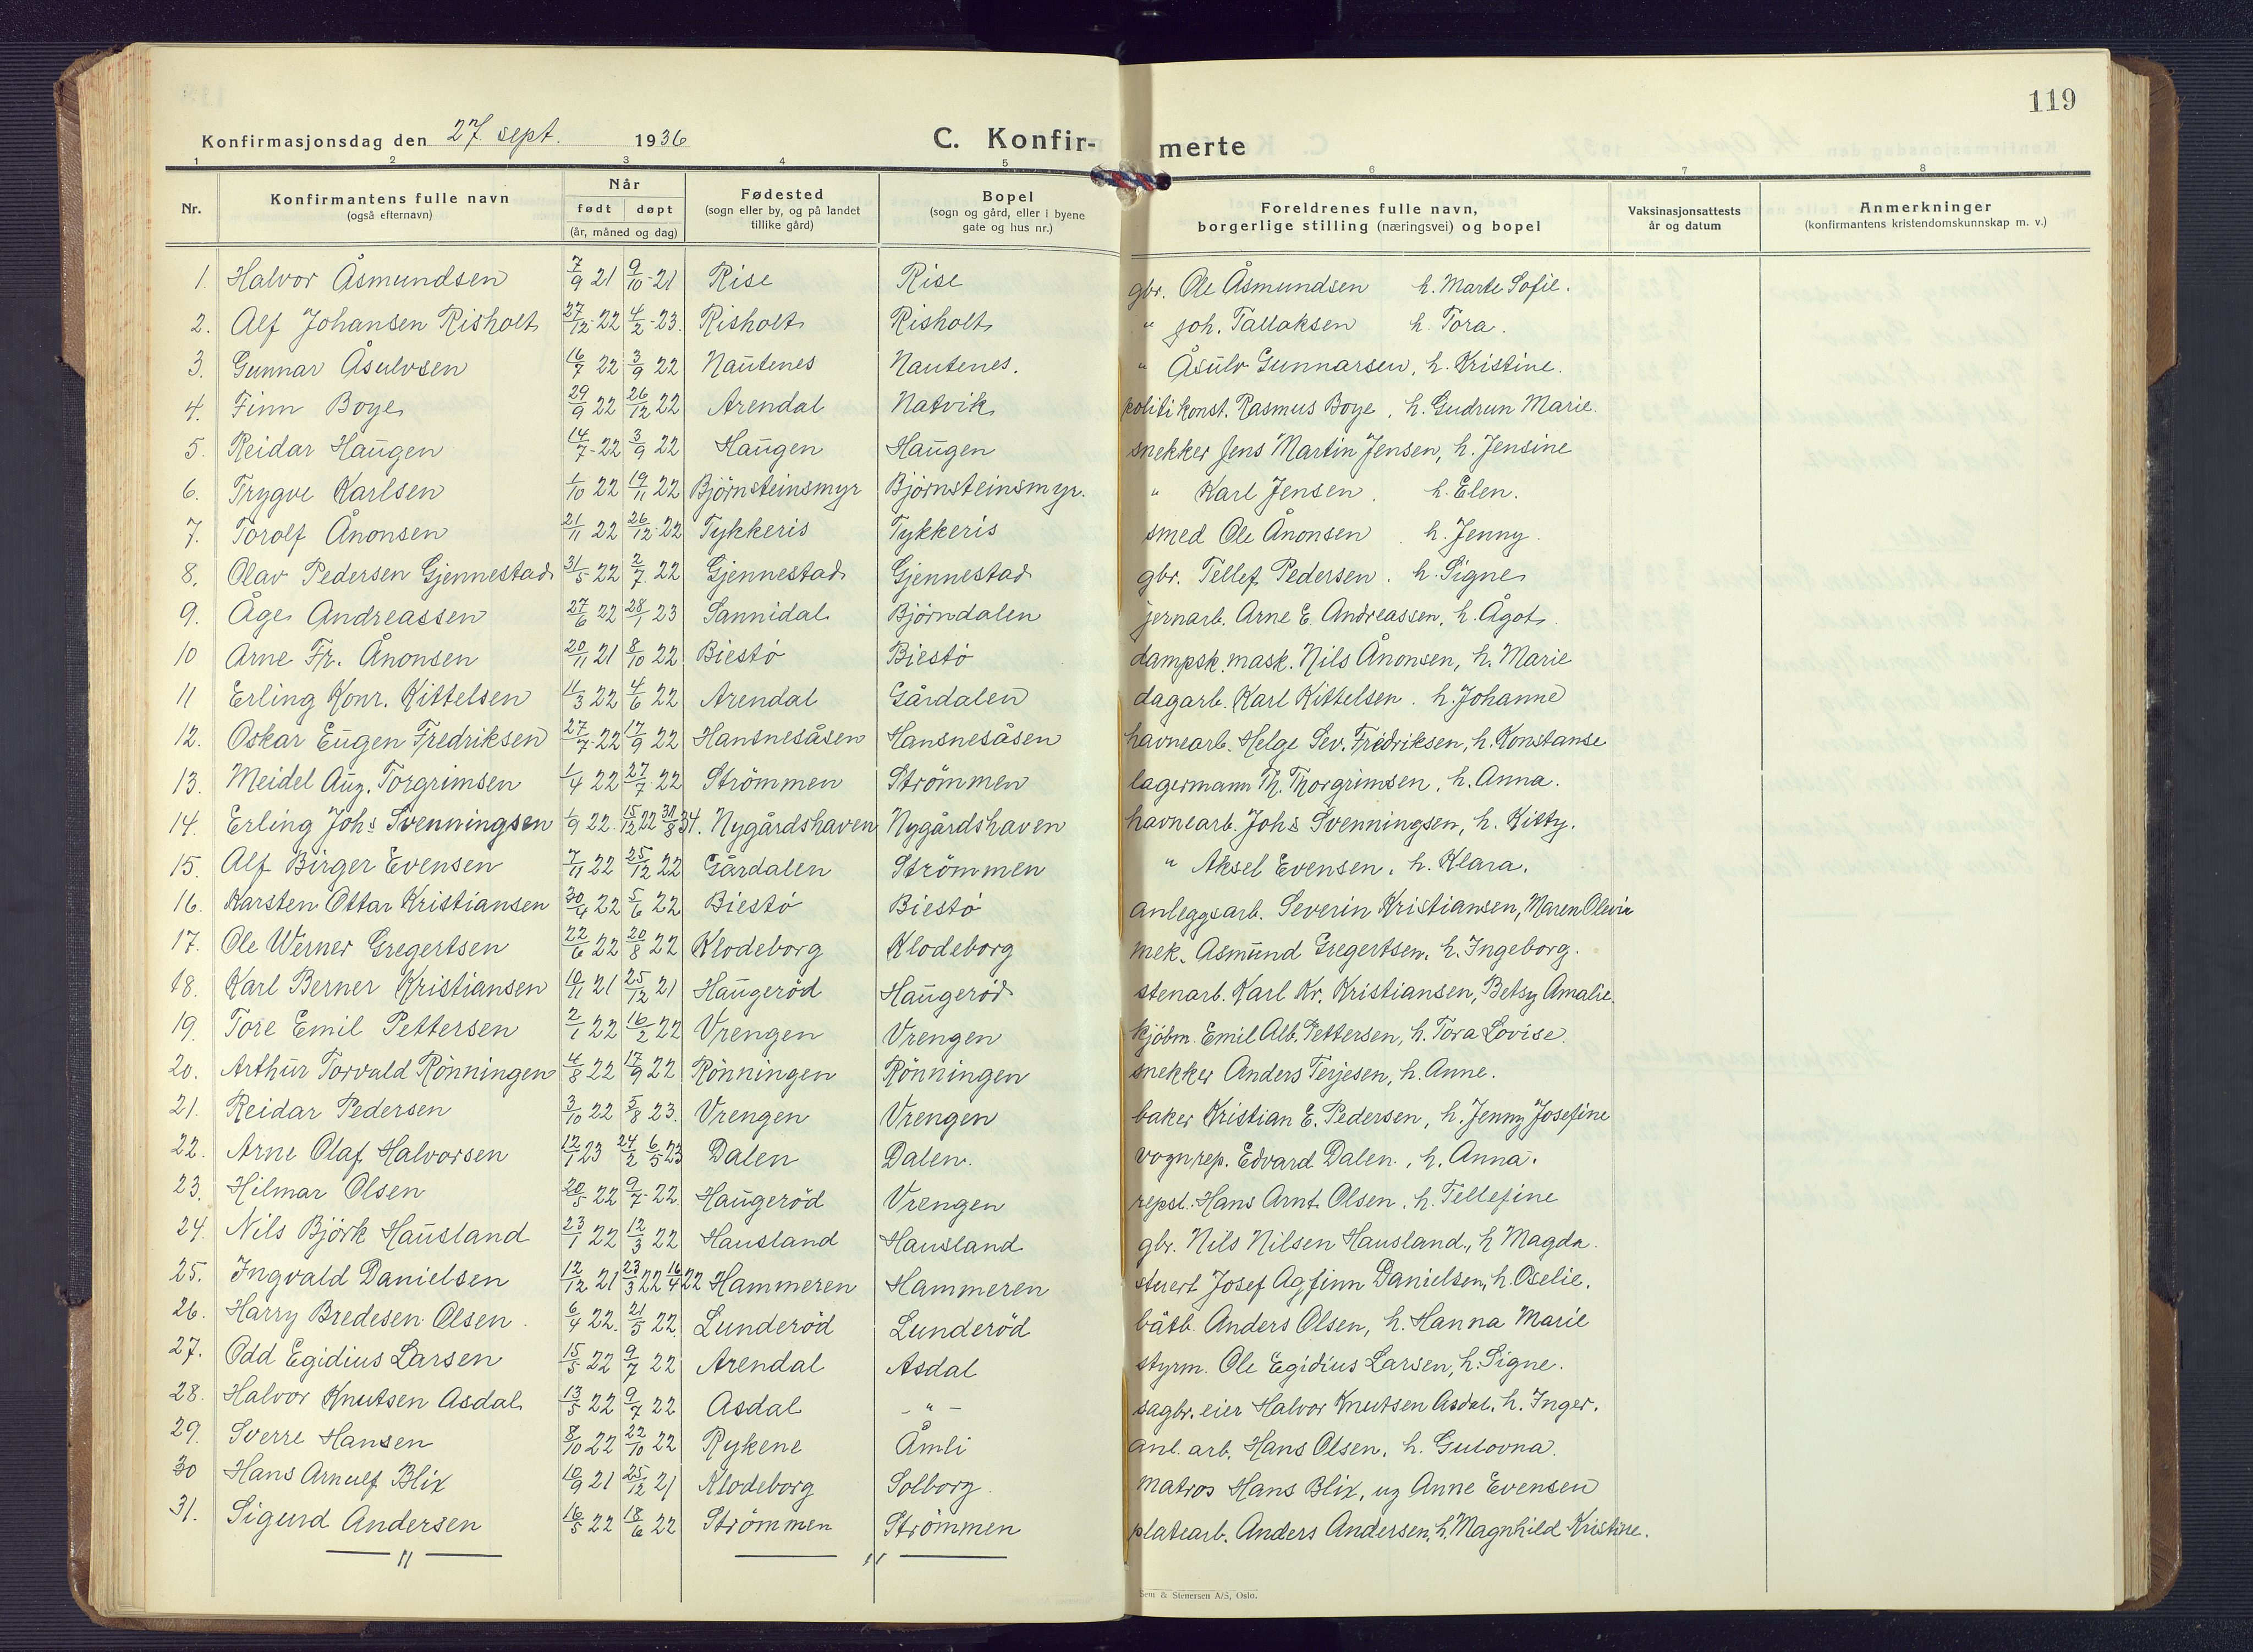 119
Konfirmasjonsdag den 27. sept. 1936 C. Konfir- merte
1 2 3 4 5 6 7 8
Nr. Konfirmantens fulle navn (også efternavn) Når født døpt (år, måned og dag) Fødested (sogn eller by, og på landet tillike gård) Bopel (sogn og gård, eller i byene gate og hus nr.) Foreldrenes fulle navn, borgerlige stilling (næringsvei) og bopel Vaksinasjonsattests år og datum Anmerkninger (konfirmantens kristendomskunnskap m. v.)
1. Halvor Åsmundsen 7/9 21 9/10-21 Rise Rise gbr. Ole Åsmundsen h. Marte Sofie.
2. Alf Johansen Risholt 27/12-22 4/2-23. Risholt Risholt " Joh. Tallaksen h. Tora.
3. Gunnar Åsulvsen 16/7 22 3/9 22 Nautenes Nautenes. " Åsulv Gunnarsen, h. Kristine.
4. Finn Boye 29/9 22 26/12 22 Arendal Natvik politikonst. Rasmus Boye, h. Gudrun Marie.
5. Reidar Haugen 14/7-22 3/9 22 Haugen Haugen snekker Jens Martin Jensen, h. Jensine
6. Trygve Karlsen 1/10 22 19/11 22 Björnsteinsmyr Björnsteinsmyr. " Karl Jensen. h. Elen.
7. Torolf Ånonsen 21/11 22 26/12-22 Tykkeris Tykkeris smed Ole Ånonsen. h. Jenny.
8. Olav Pedersen Gjennestad 31/5 22 2/7. 22 Gjennestad Gjennestad gbr. Tellef Pedersen. h. Signe
9. Åge Andreassen 27/6 22 28/1 23 Sannidal Björndalen jernarb. Arne E. Andreassen, h. Ågot.
10 Arne Fr. Ånonsen 20/11 21 8/10 22 Biestö Biestö dampsk. mask. Nils Ånonsen, h. Marie
11 Erling Konr. Kittelsen 11/3 22 4/6 22 Arendal Gårdalen dagarb. Karl Kittelsen. h. Johanne
12. Oskar Eugen Fredriksen 27/7-22 17/9 22 Hansnesåsen Hansnesåsen havnearb. Helge Sev. Fredriksen, h. Konstanse
13. Meidel Aug. Torgrimsen 1/4 22 27/7-22 Strömmen Strömmen lagermann Th. Thorgrimsen, h. Anna.
14. Erling Johs Svenningsen 1/9 22. 15/12 22 31/8 34. Nygårdshaven Nygårdshaven havnearb. Johs Svenningsen, h. Kitty.
15. Alf Birger Evensen 7/11 22 25/12 22 Gårdalen Strömmen " Aksel Evensen. h. Klara.
16. Karsten Ottar Kristiansen 30/4 22 5/6 22 Biestö Biestö anleggsarb. Severin Kristiansen, Maren Olevia
17. Ole Werner Gregertsen 22/6 22 20/8 22 Klodeborg Klodeborg mek. Asmund Gregertsen, h. Ingeborg.
18. Karl Berner Kristiansen 10/11 21 25/12 21 Haugeröd Haugeröd stenarb. Karl Kr. Kristiansen, Betsy Amalie.
19. Tore Emil Pettersen 2/1 22 16/2 22 Vrengen Vrengen kjöbm. Emil Alb. Pettersen, h. Tora Lovise.
20. Arthur Torvald Rönningen 4/8 22 17/9 22 Rönningen Rönningen snekker Anders Terjesen, h. Anne.
21. Reidar Pedersen 3/10 22 5/8 23. Vrengen Vrengen baker Kristian E. Pedersen, h. Jenny Josefine
22. Arne Olaf Halvorsen 12/1 23 24/2 6/5 23 Dalen Dalen. vognrep. Edvard Dalen., h. Anna.
23. Hilmar Olsen 20/5 22 9/7-22. Haugeröd Vrengen repsl. Hans Arnt Olsen. h. Tellefine
24. Nils Björk Hausland 23/1 22 12/3 22 Hausland Hausland gbr. Nils Nilsen Hausland, h Magda.
25. Ingvald Danielsen 12/12 21 23/3 22 16/4 22 Hammeren Hammeren stuert Josef Agfinn Danielsen, h. Oselie.
26. Harry Bredesen Olsen. 6/4 22. 21/5 22 Lunderöd Lunderöd båtb. Anders Olsen, h. Hanna Marie
27. Odd Egidius Larsen 15/5 22 9/7 22 Arendal Asdal styrm. Ole Egidius Larsen, h. Signe.
28. Halvor Knutsen Asdal 13/5 22 9/7 22 Asdal - " - sagbr. eier Halvor Knutsen Asdal, h. Inger.
29. Sverre Hansen 8/10 22 22/10 22 Rykene Åmli anl. arb. Hans Olsen, h. Gulovna.
30 Hans Arnulf Blix 10/9 21 25/12 21 Klodeborg Solborg matros Hans Blix, ug Anne Evensen
31. Sigurd Andersen 16/5 22 18/6 22 Strömmen Strömmen platearb. Anders Andersen, h. Magnhild Kristine.
Sem & Stenersen A/S, Oslo.